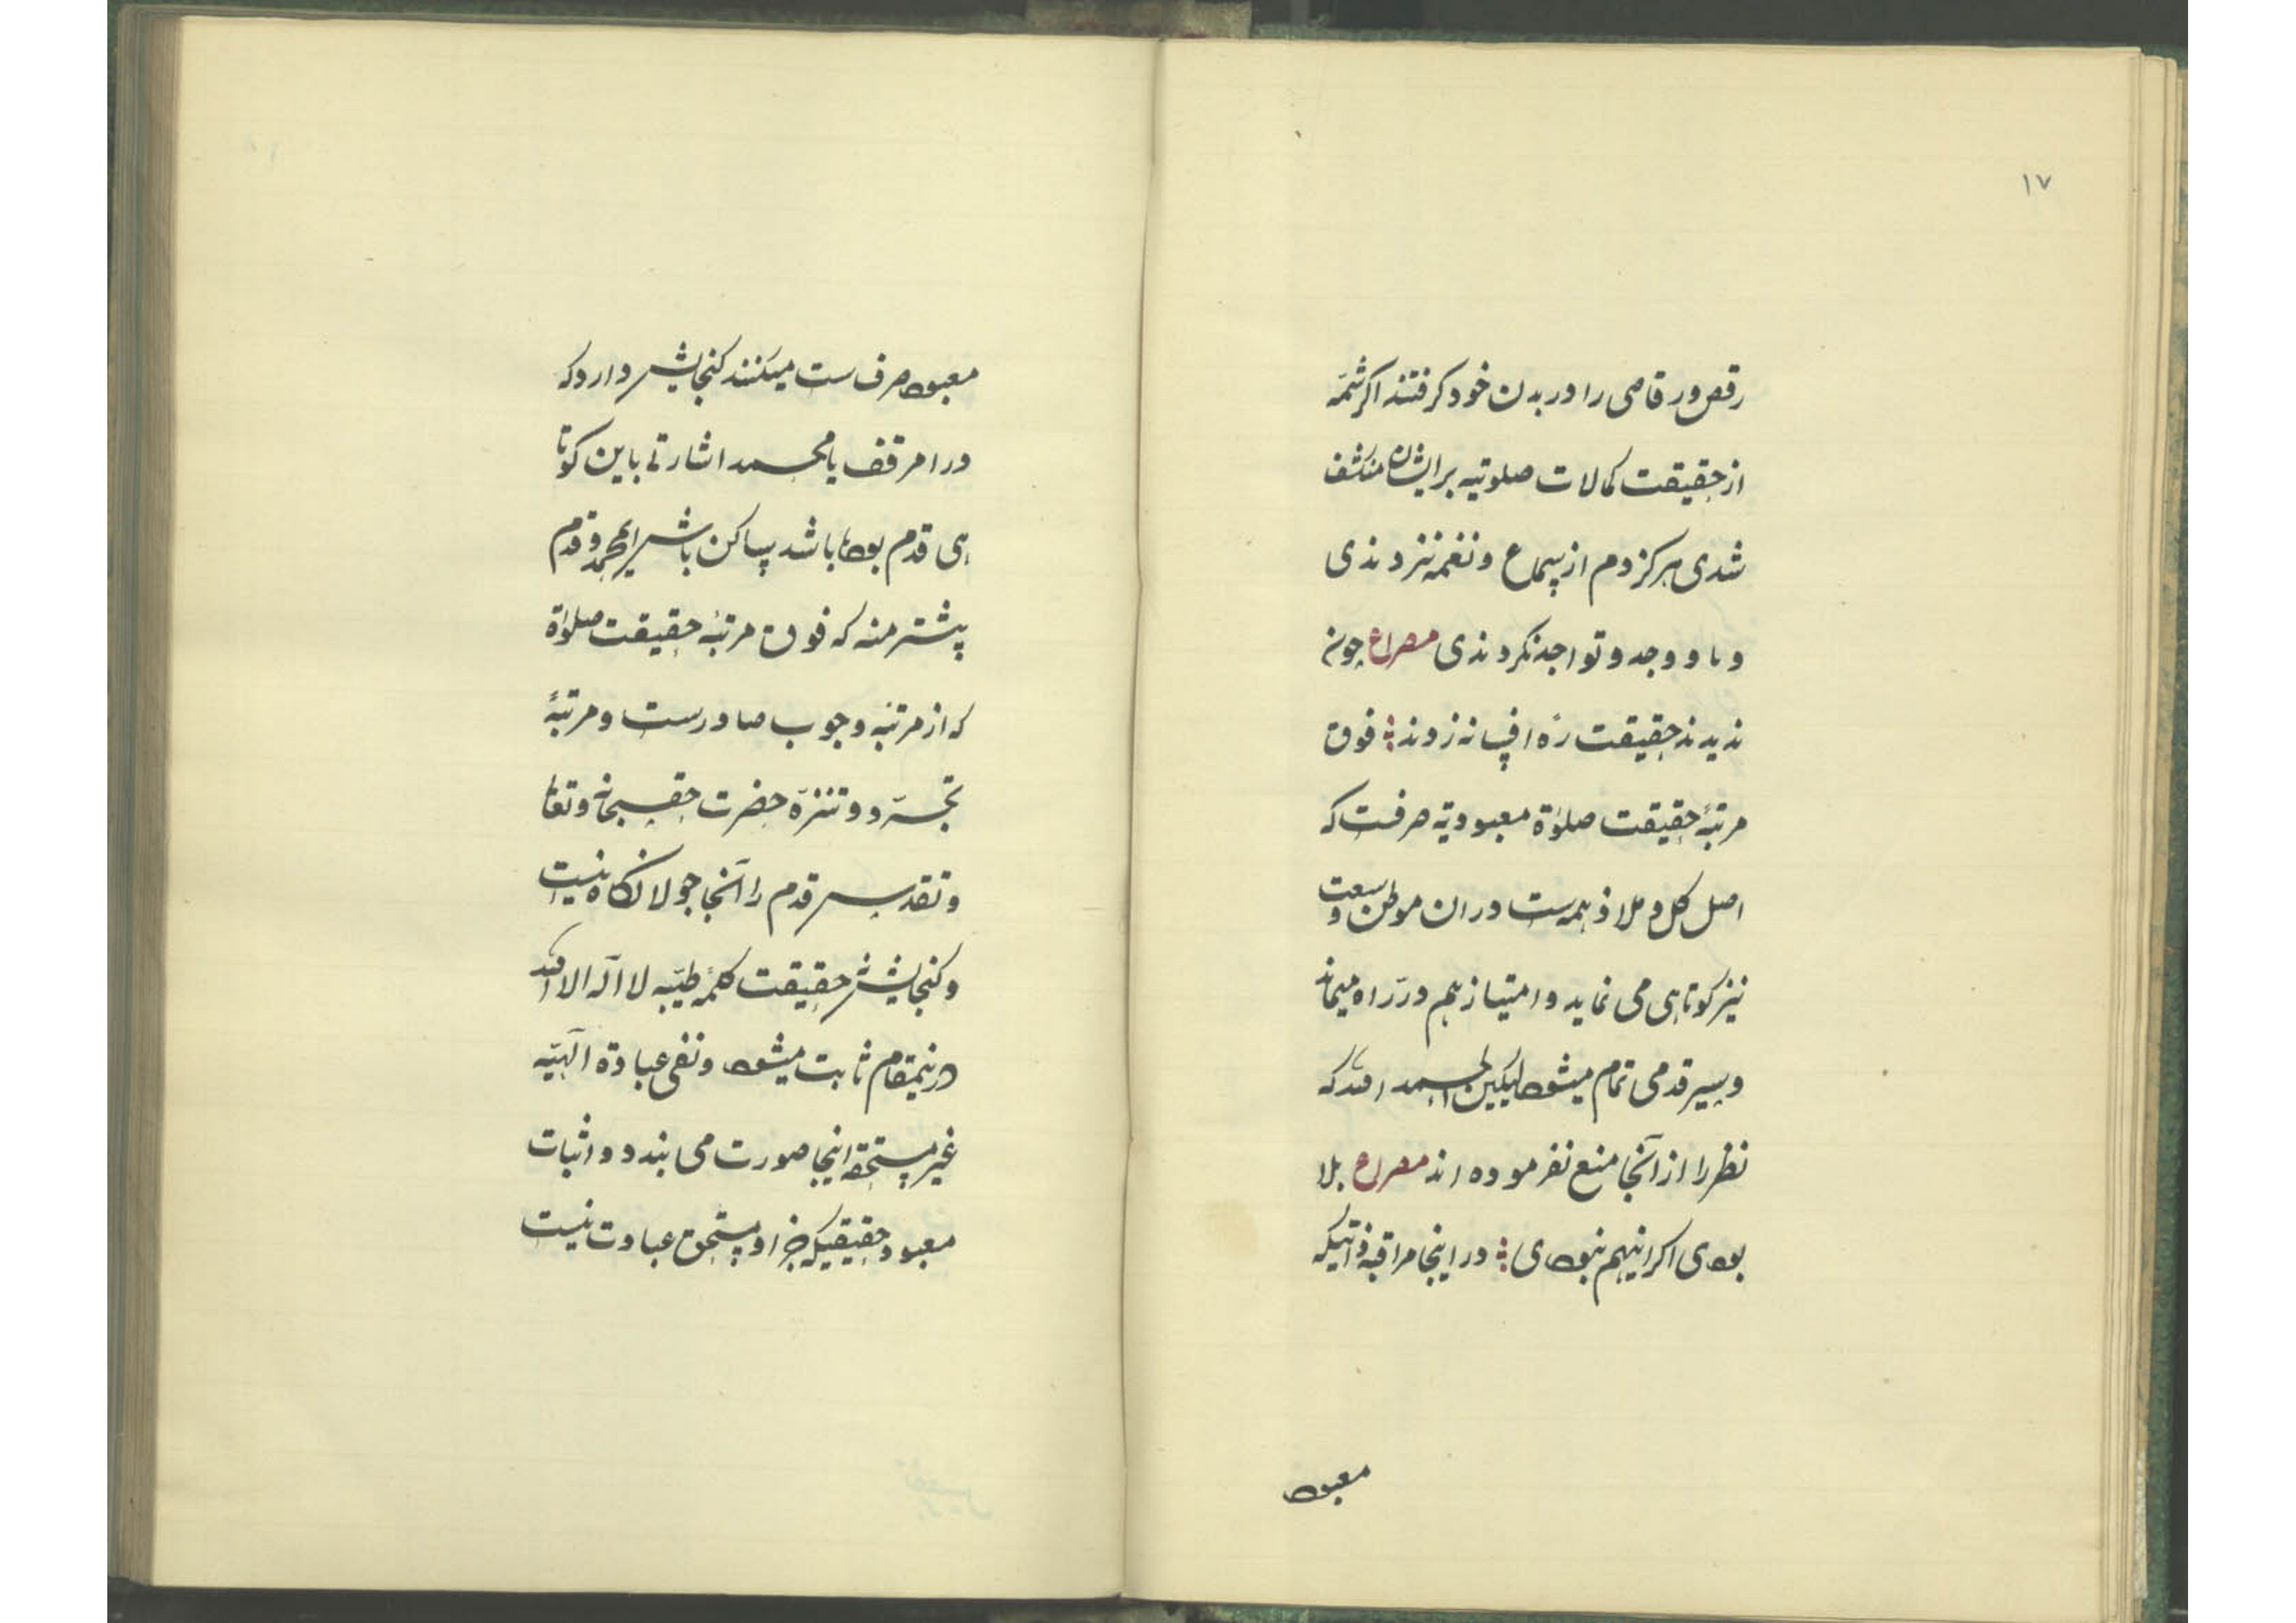 ۱۷
رقص و رقاصی را در بدن خود گرفتند اگر شمّه
از حقیقت کمالات صلوتیه بر ایشان منکشف
شدی هرگز دم از سماع و نغمه نزدندی
و یاد وجد و تواجد نکردندی مصراع چون
ندیدند حقیقت ره افسانه زدند فوق
مرتبهٔ حقیقت صلوٰة معبودیة صرفست که
اصل کل و ملاذ همه ست در ان موطن وسعت
نیز کوتاهی می نماید و امتیاز هم در راه میماند
و سیر قدمی تمام میشود لیکن الحمد الله که
نظر را از آنجا منع نفرموده اند مصراع بلا
بودی اگر اینهم نبودی در اینجا مراقبه ذاتیکه
معبود
معبود صرف ست میکنند گنجایش دارد که
در امر قف یا محمد اشارتی باین کوتا
هی قدم بوده باشد ساکن باش ای محمد و قدم
پیشتر منه که فوق مرتبهٔ حقیقت صلوٰة
که از مرتبهٔ وجوب صادر ست و مرتبهٔ
تجرّد و تنزّه حضرت حق سبحانه و تعالی
و تقدس قدم را آنجا جولانگاه نیست
و گنجایش حقیقت کلمهٔ طیّبه لا اله الا الله
درینمقام ثابت میشود و نفی عبادة الهیّه
غیر مستحقه اینجا صورت می بندد و اثبات
معبود حقیقیکه جز او مستحق عبادت نیست